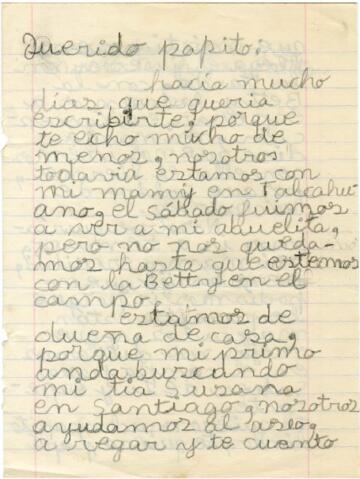 Querido papito:
hacía mucho
días que quería
escribirte, porque
te echo mucho de
menos, nosotros
todavia estamos con
mi mamy en Talcahu-
ano, el sábado fuimos
a ver a mi abuelita,
pero no nos queda-
mos hasta que estemos
con la Betty en el
campo.
estamos de
duena de casa,
porque mi primo
anda buscando
mi tía Susana
en Santiago, nosotros
ayudamos al aseo,
a regar y te cuento